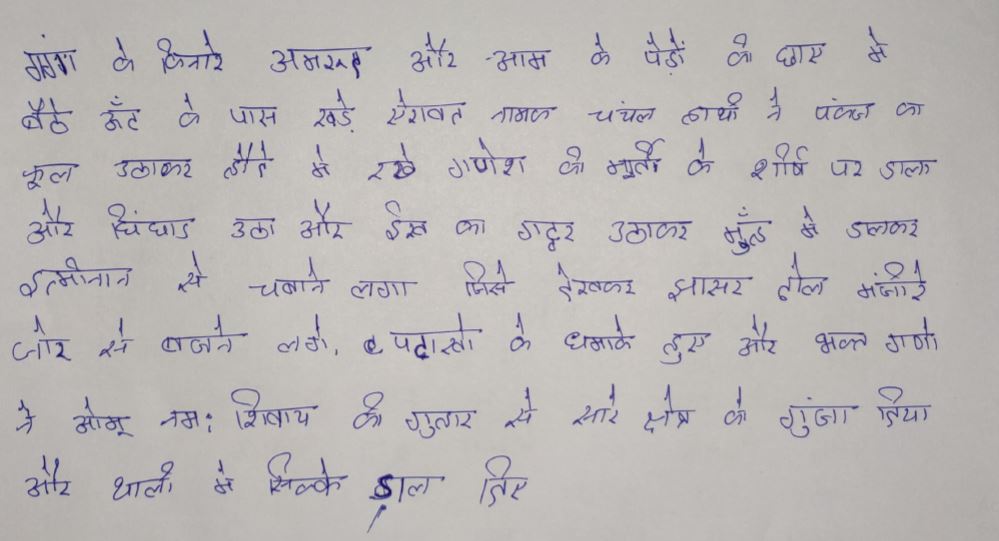 गंगा के किनारे अमरूद और आम के पेड़ों की छाए में
बैठे ऊँट के पास खड़े ऐरावत नामक चंचल हाथी ने पंकज का
फूल उठाकर हौदे में रखे गणेश की मूर्ती के शीर्ष पर डाला
और चिंघाड उठा और ईख का गट्ठर उठाकर मुँह में डालकर
इत्मीनान से चबाने लगा जिसे देखकर झासर ढोल मंजीरे
जोर से बजने लगे, पटाखो के धमाके हुए और भक्त गणो
ने ओम् नमः शिवाय की गुंजार से सारे क्षेत्र को गुंजा दिया
और थाली में सिक्के डाल दिए